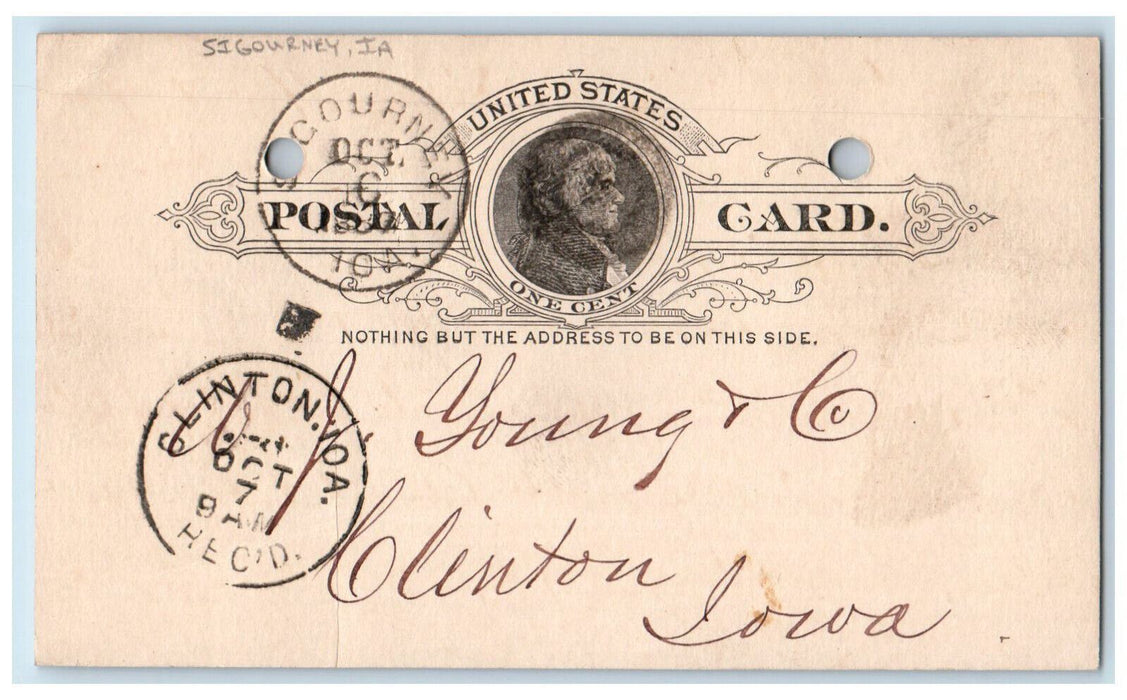 SIGOURNEY, IA
SIGOURNEY
OCT
6
IOA.
UNITED STATES
POSTAL CARD.
ONE CENT
NOTHING BUT THE ADDRESS TO BE ON THIS SIDE.
CLINTON. IOA.
OCT
7
9 AM
REC'D.
J. Young & Co
Clinton
Iowa